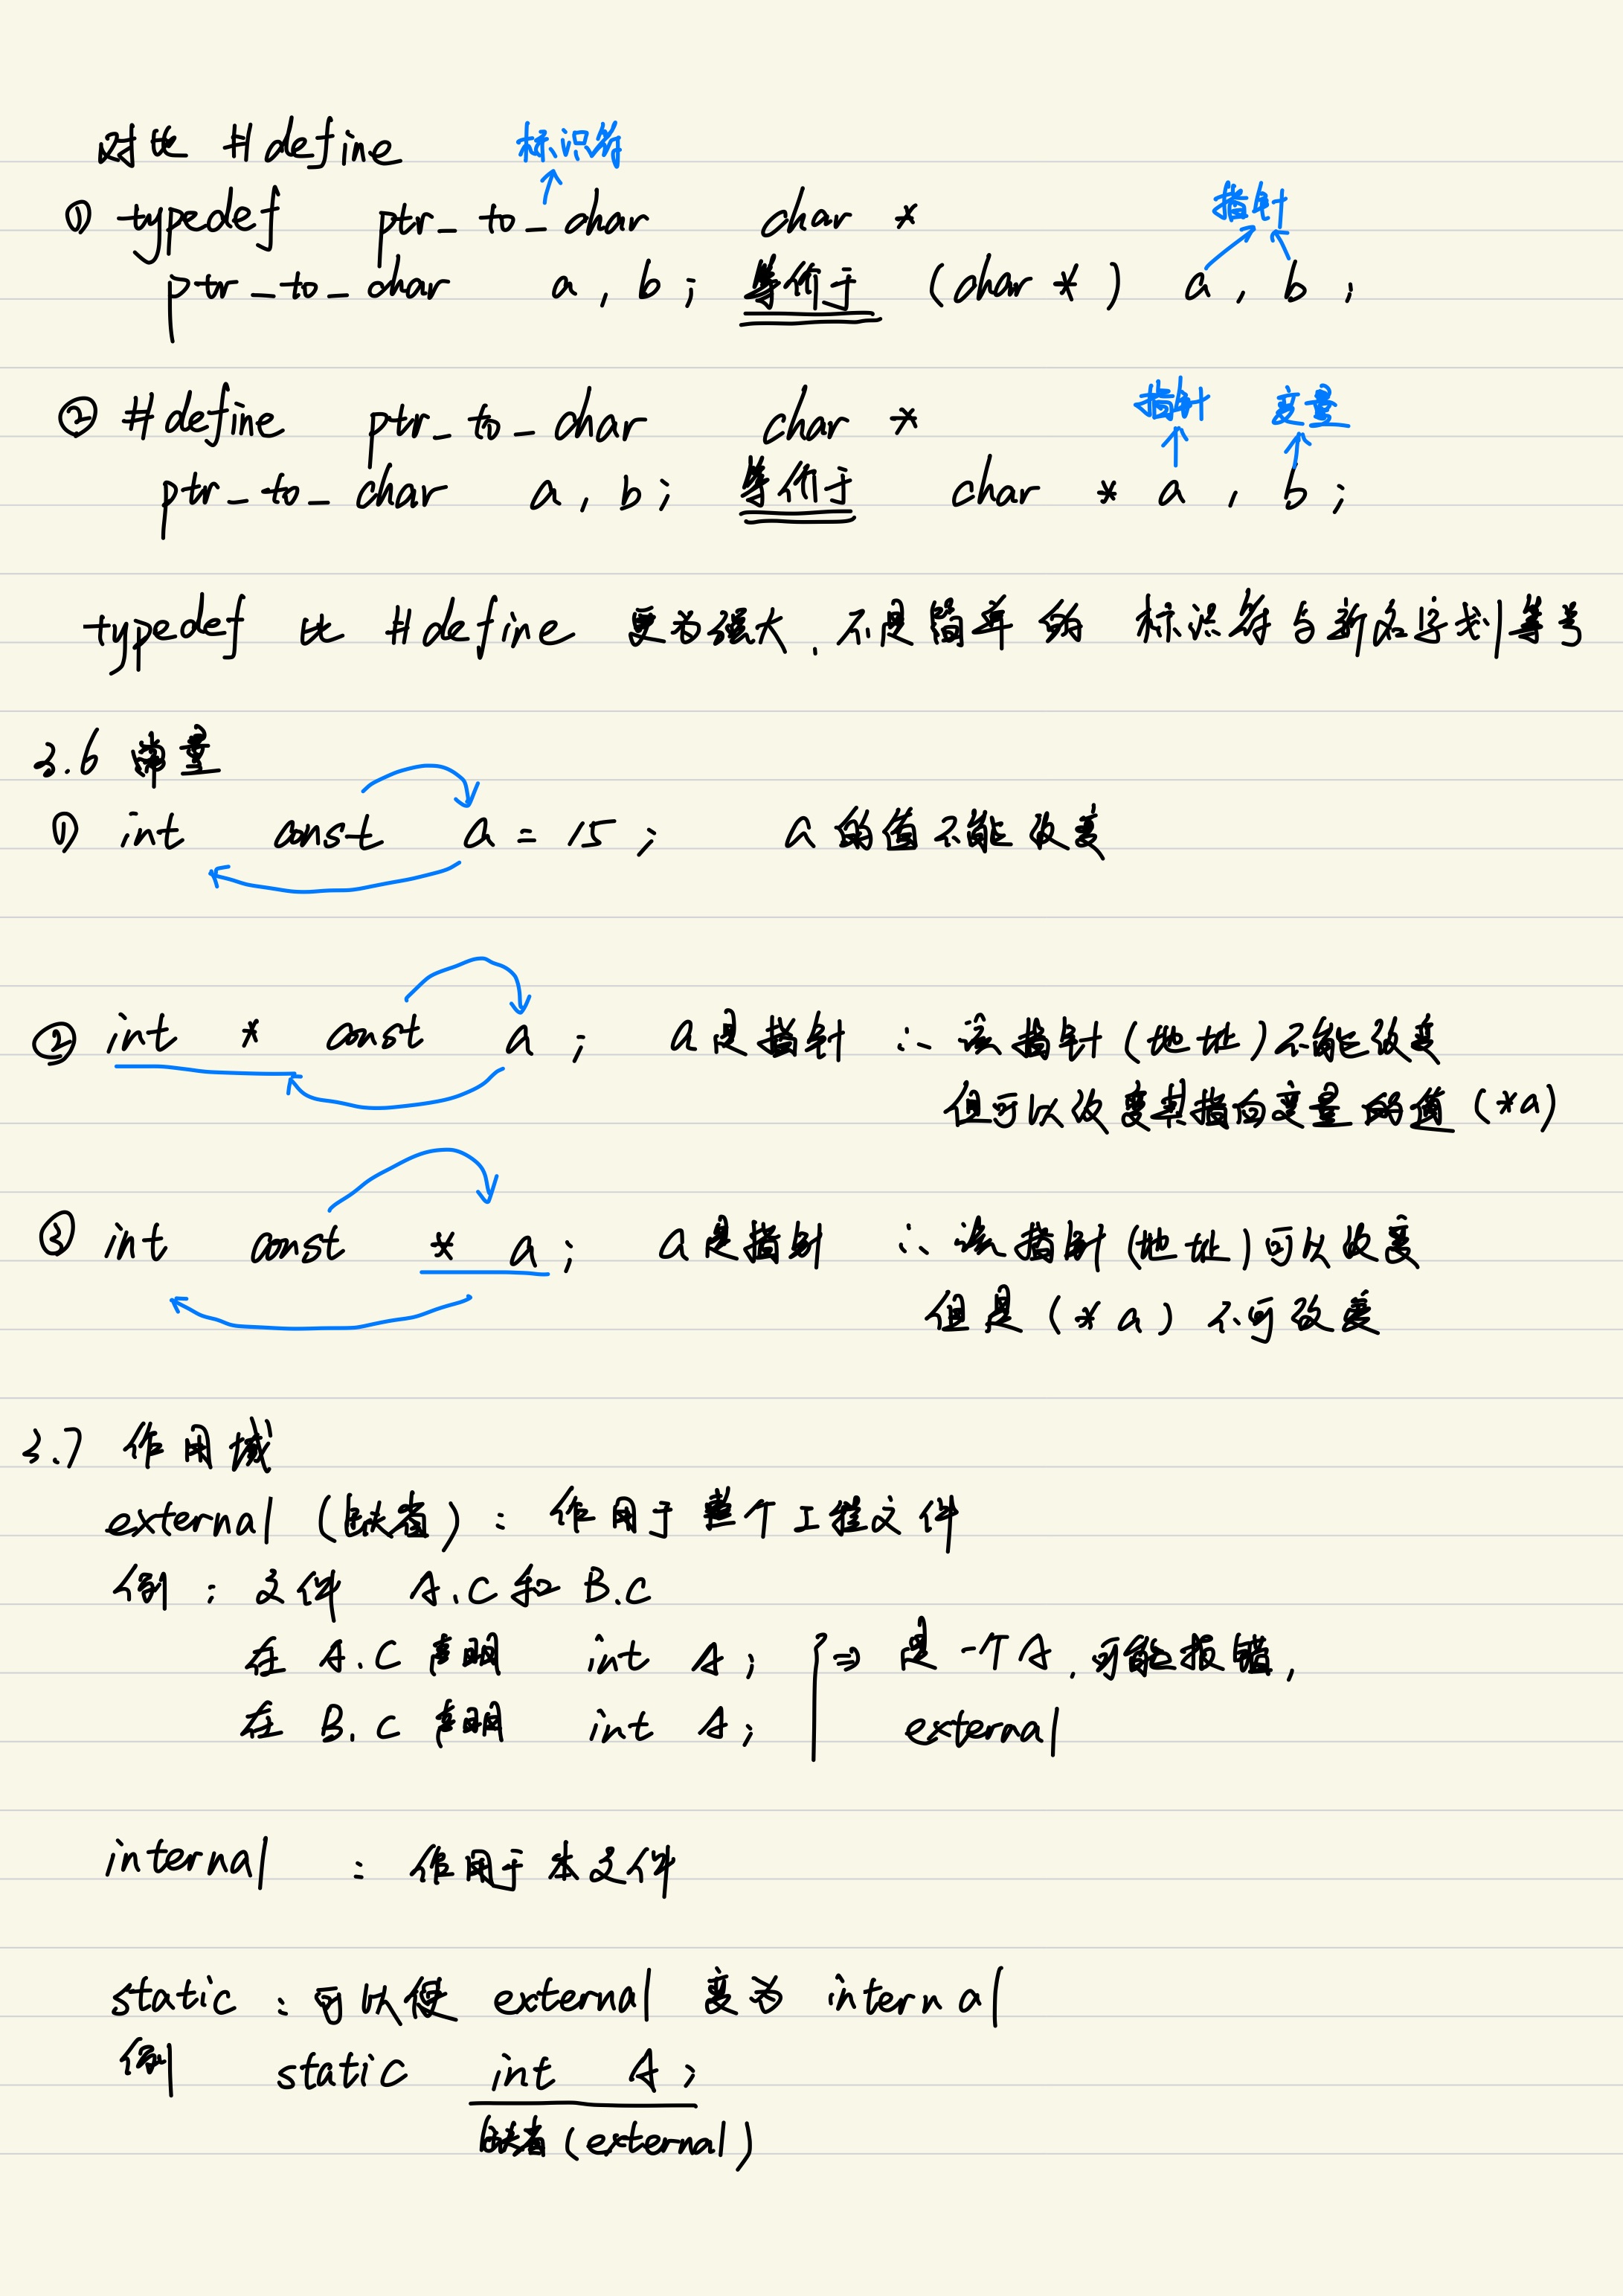 对比 #define 标识符
① typedef ptr_to_char char * 指针
ptr_to_char a, b; 等价于 (char *) a, b;
② #define ptr_to_char char * 指针 变量
ptr_to_char a, b; 等价于 char * a, b;
typedef 比 #define 更为强大,不是简单的 标识符与新名字划等号
3.6 常量
① int const a = 15; a 的值不能改变
② int * const a; a是指针 ∴ 该指针(地址)不能改变
但可以改变其指向变量的值 (*a)
③ int const * a; a是指针 ∴ 该指针(地址)可以改变
但是 (*a) 不可改变
3.7 作用域
external (缺省): 作用于整个工程文件
例: 文件 A.C 和 B.C
在 A.C 声明 int A; } ⇒ 是一个A,可能报错,
在 B.C 声明 int A; external
internal : 作用于本文件
static : 可以使 external 变为 internal
例 static int A;
缺省 (external)